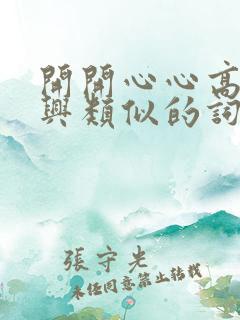 開開心心高
興類似的詞
張守先
未經同意禁止轉載